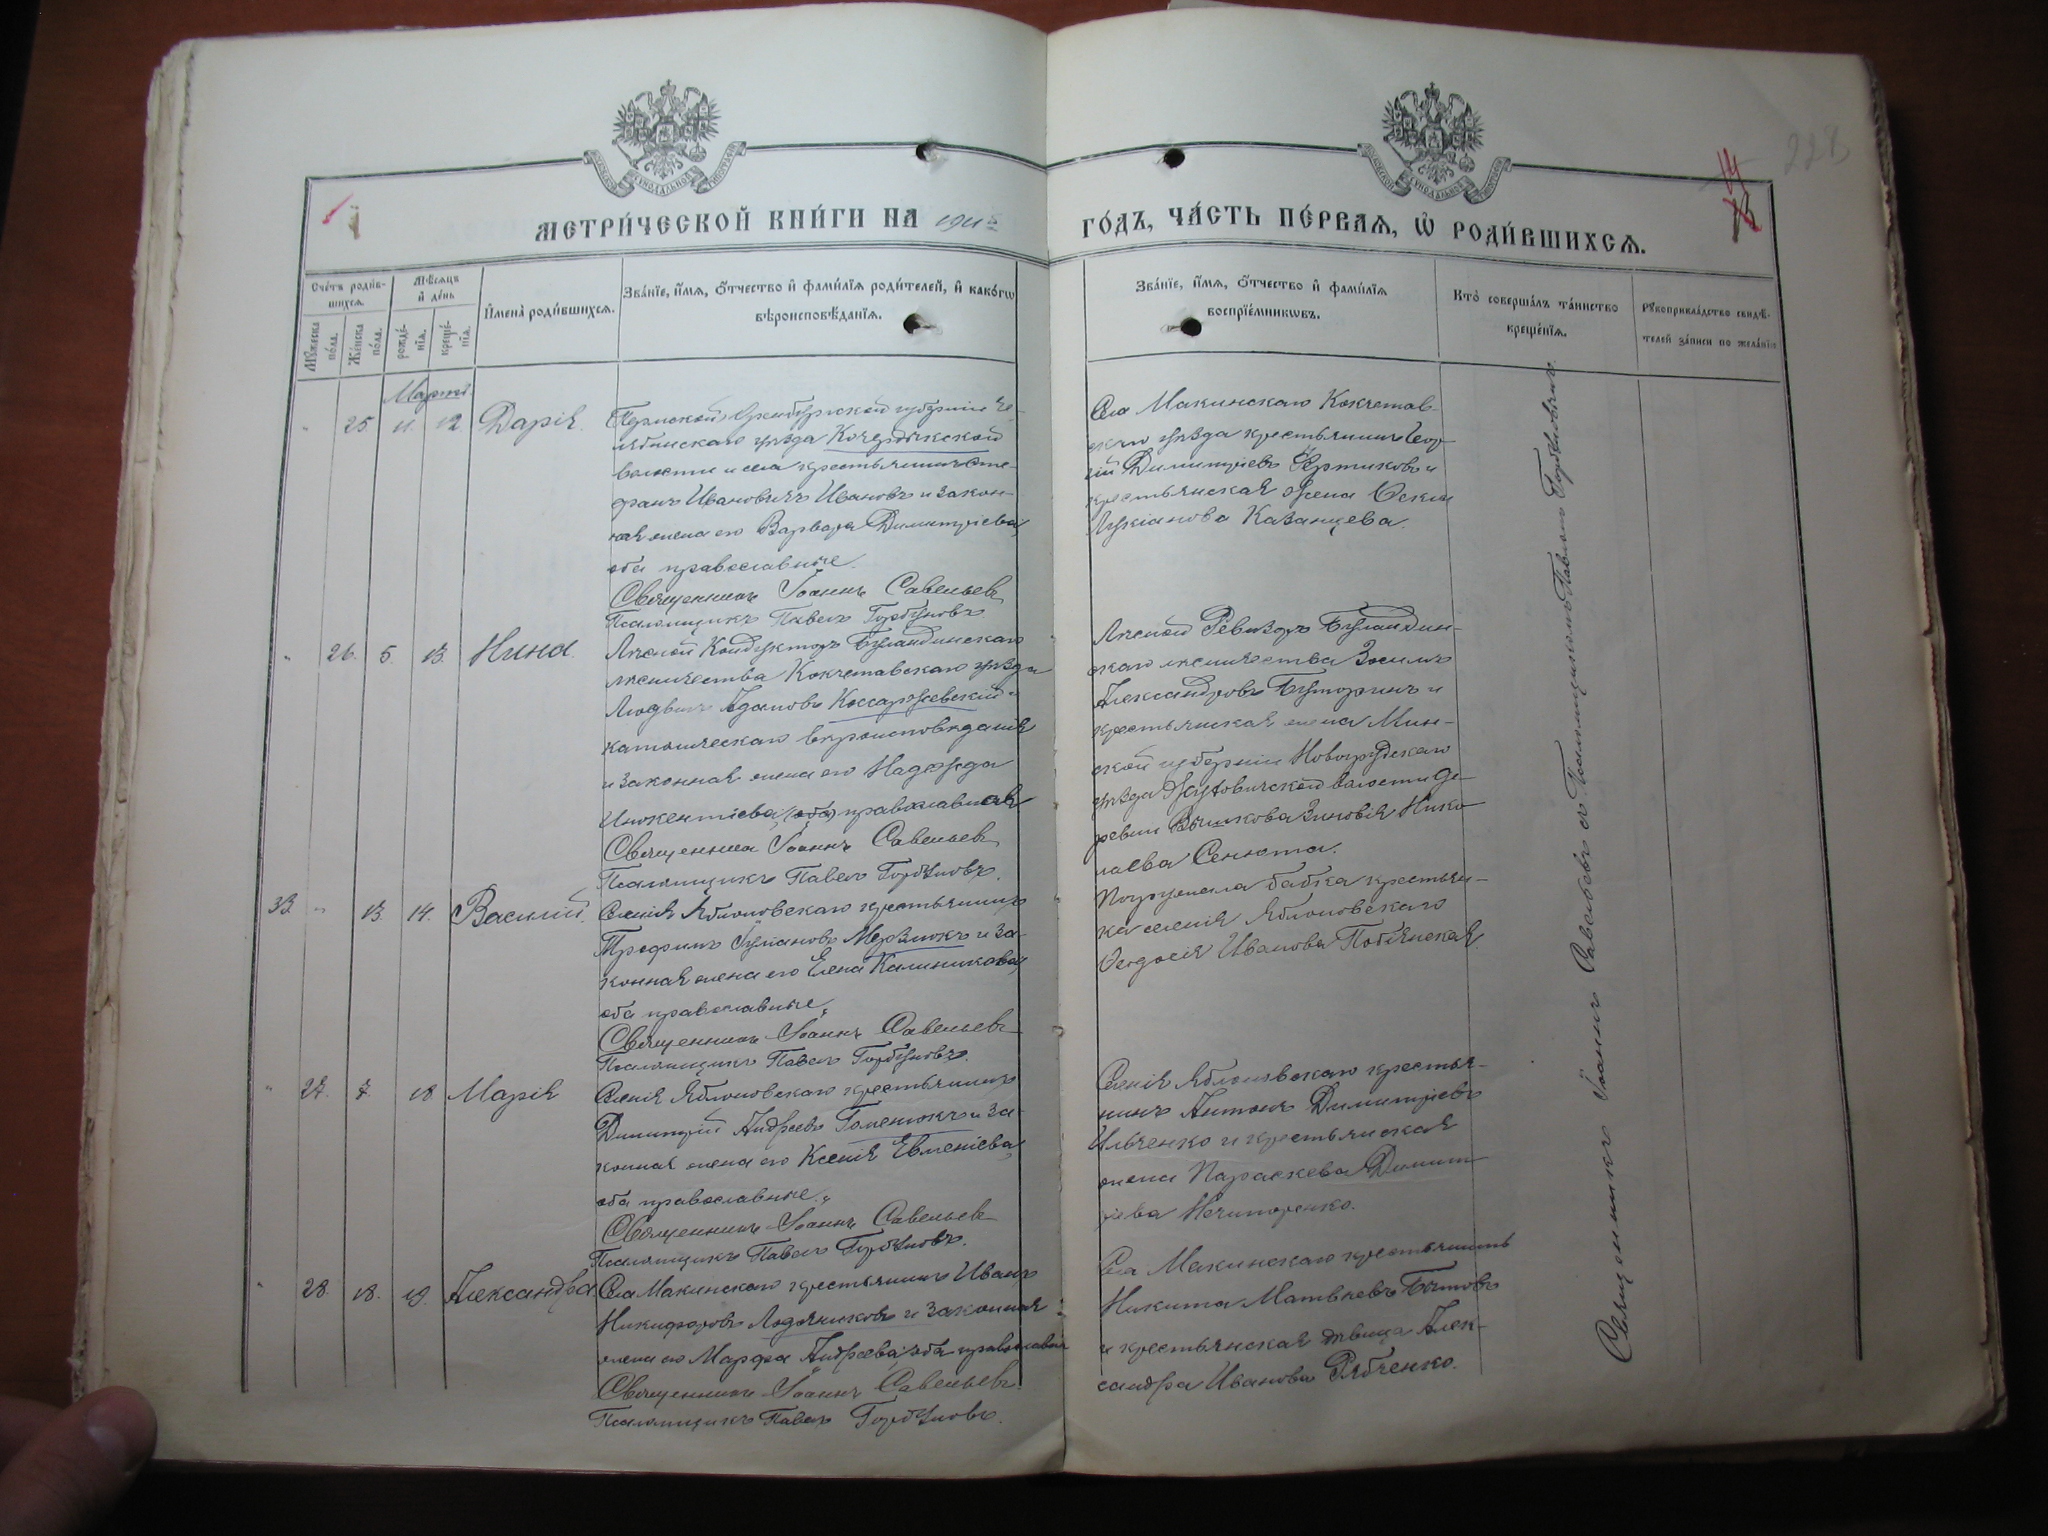 МЕТРИ́ЧЕСКОЙ КНИ́ГИ НА 1911 й
ГО́ДЪ, ЧА́СТЬ ПЕ́РВАѦ, Ѡ҆ РОДИ́ВШИХСѦ.
228
Сче́тъ роди́в-
шихсѧ.
Мѣ́сѧцъ
и҆ де́нь
И҆мена̀ роди́вшихсѧ.
Зва́нїе, и҆́мѧ, ѻ҆́тчество и҆ фами́лїѧ роди́телей, и҆ како́гѡ
вѣроисповѣ́данїѧ.
Зва́нїе, и҆́мѧ, ѻ҆́тчество и҆ фами́лїѧ
воспрїе́мникѡвъ.
Кто̀ соверша́лъ та́инство
креще́нїѧ.
Рꙋкоприкла́дство свидѣ́-
телей за́писи по жела́нїю
Мꙋ́жеска
по́ла.
Же́нска
по́ла.
рожде́-
нїѧ.
креще́-
нїѧ.
Мартъ
" 25 11. 12 Дарія.
Оренбургской губерніи Че-
лябинскаго уѣзда Кочердыкской
волости и села крестьянинъ Сте-
фанъ Ивановичъ Ивановъ и закон-
ная жена его Варвара Димитріева,
оба православные.
Священникъ Іоаннъ Савельевъ
Псаломщикъ Павелъ Горбуновъ
Села Макинскаго Кокчетав-
скаго уѣзда крестьянинъ Геор-
гій Димитріевъ и
крестьянская жена
Лукіанова Казанцева.
" 26. 5. 13. Нина.
Лѣсной Кондукторъ Буландинскаго
лѣсничества Кокчетавскаго уѣзда
Людвигъ Адамовъ Коссаржевскій
католическаго вѣроисповѣданія
и законная жена его Надежда
Инокентіева, (оба) православная
Священникъ Іоаннъ Савельевъ
Псаломщикъ Павелъ Горбуновъ.
Лѣсной Ревизоръ Буландин-
скаго лѣсничества Зосимъ
Александровъ Буторинъ и
крестьянская жена Мин-
ской губерніи Новогрудскаго
уѣзда волости де-
ревни Зиновія Нико-
лаева Сенюта.
33. " 13. 14. Василій.
Селенія Яблоновскаго крестьянинъ
Трофимъ Мерзлюкъ и за-
конная жена его Елена Калиникова,
оба православные.
Священникъ Іоаннъ Савельевъ
Псаломщикъ Павелъ Горбуновъ.
Погружала бабка крестьян-
ка селенія Яблоновскаго
Ѳеодосія Иванова
" 27. 7. 18 Марія
Селенія Яблоновскаго крестьянинъ
Димитрій Андреевъ Гоменюкъ и за-
конная жена его Ксенія Евменіева,
оба православные.
Священникъ Іоаннъ Савельевъ
Псаломщикъ Павелъ Горбуновъ.
Селенія Яблоновскаго крестья-
нинъ Антонъ Димитріевъ
Ильченко и крестьянская
жена Параскева Димит-
ріева Нечипоренко.
" 28. 18. 19. Александра
Села Макинскаго крестьянинъ Иванъ
Никифоровъ Лодочниковъ и законная
жена его Марфа Андреева, оба православные
Священникъ Іоаннъ Савельевъ
Псаломщикъ Павелъ Горбуновъ.
Села Макинскаго крестьянинъ
Никита Матвѣевъ Бытовъ
и крестьянская дѣвица Алек-
сандра Иванова Рябченко.
Священникъ Іоаннъ Савельевъ съ Псаломщикомъ Павломъ Горбуновымъ.